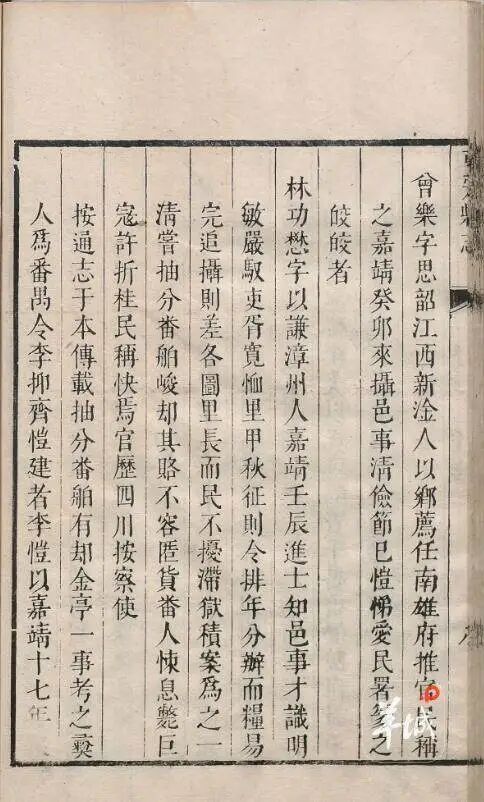 縣志
曾樂字思韶江西新淦人以鄉薦任南雄府推官民稱
之嘉靖癸卯來攝邑事清儉節已愷悌愛民署篆之
皎皎者
林功懋字以謙漳州人嘉靖壬辰進士知邑事才識明
敏嚴馭吏胥寬恤里甲秋征則令排年分辦而糧易
完追攝則差各圖里長而民不擾滯獄積案為之一
清嘗抽分番舶峻却其賂不容匿貨番人悚息斃巨
寇許折桂民稱快焉官歷四川按察使
按通志于本傳載抽分番舶有却金亭一事考之
人爲番禺令李抑齊愷建者李愷以嘉靖十七年
羊城